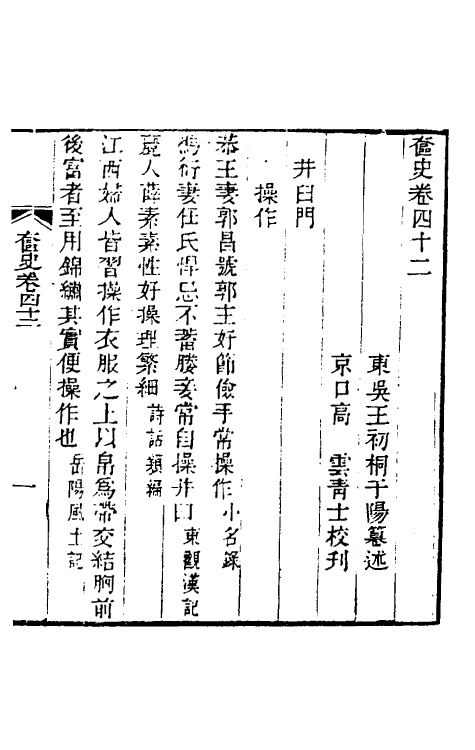 奩史卷四十二
東吳王初桐于陽纂述
京口高 雲青士校刊
井臼門
操作
恭王妻郭昌號郭主好節儉手常操作小名錄
馮衍妻任氏悍忌不蓄媵妾常自操井臼東觀漢記
麗人薛素素性好操理繁細詩話類編
江西婦人皆習操作衣服之上以帛爲帶交結胸前
後富者至用錦繡其實便操作也岳陽風土記
奩史卷四十二
一